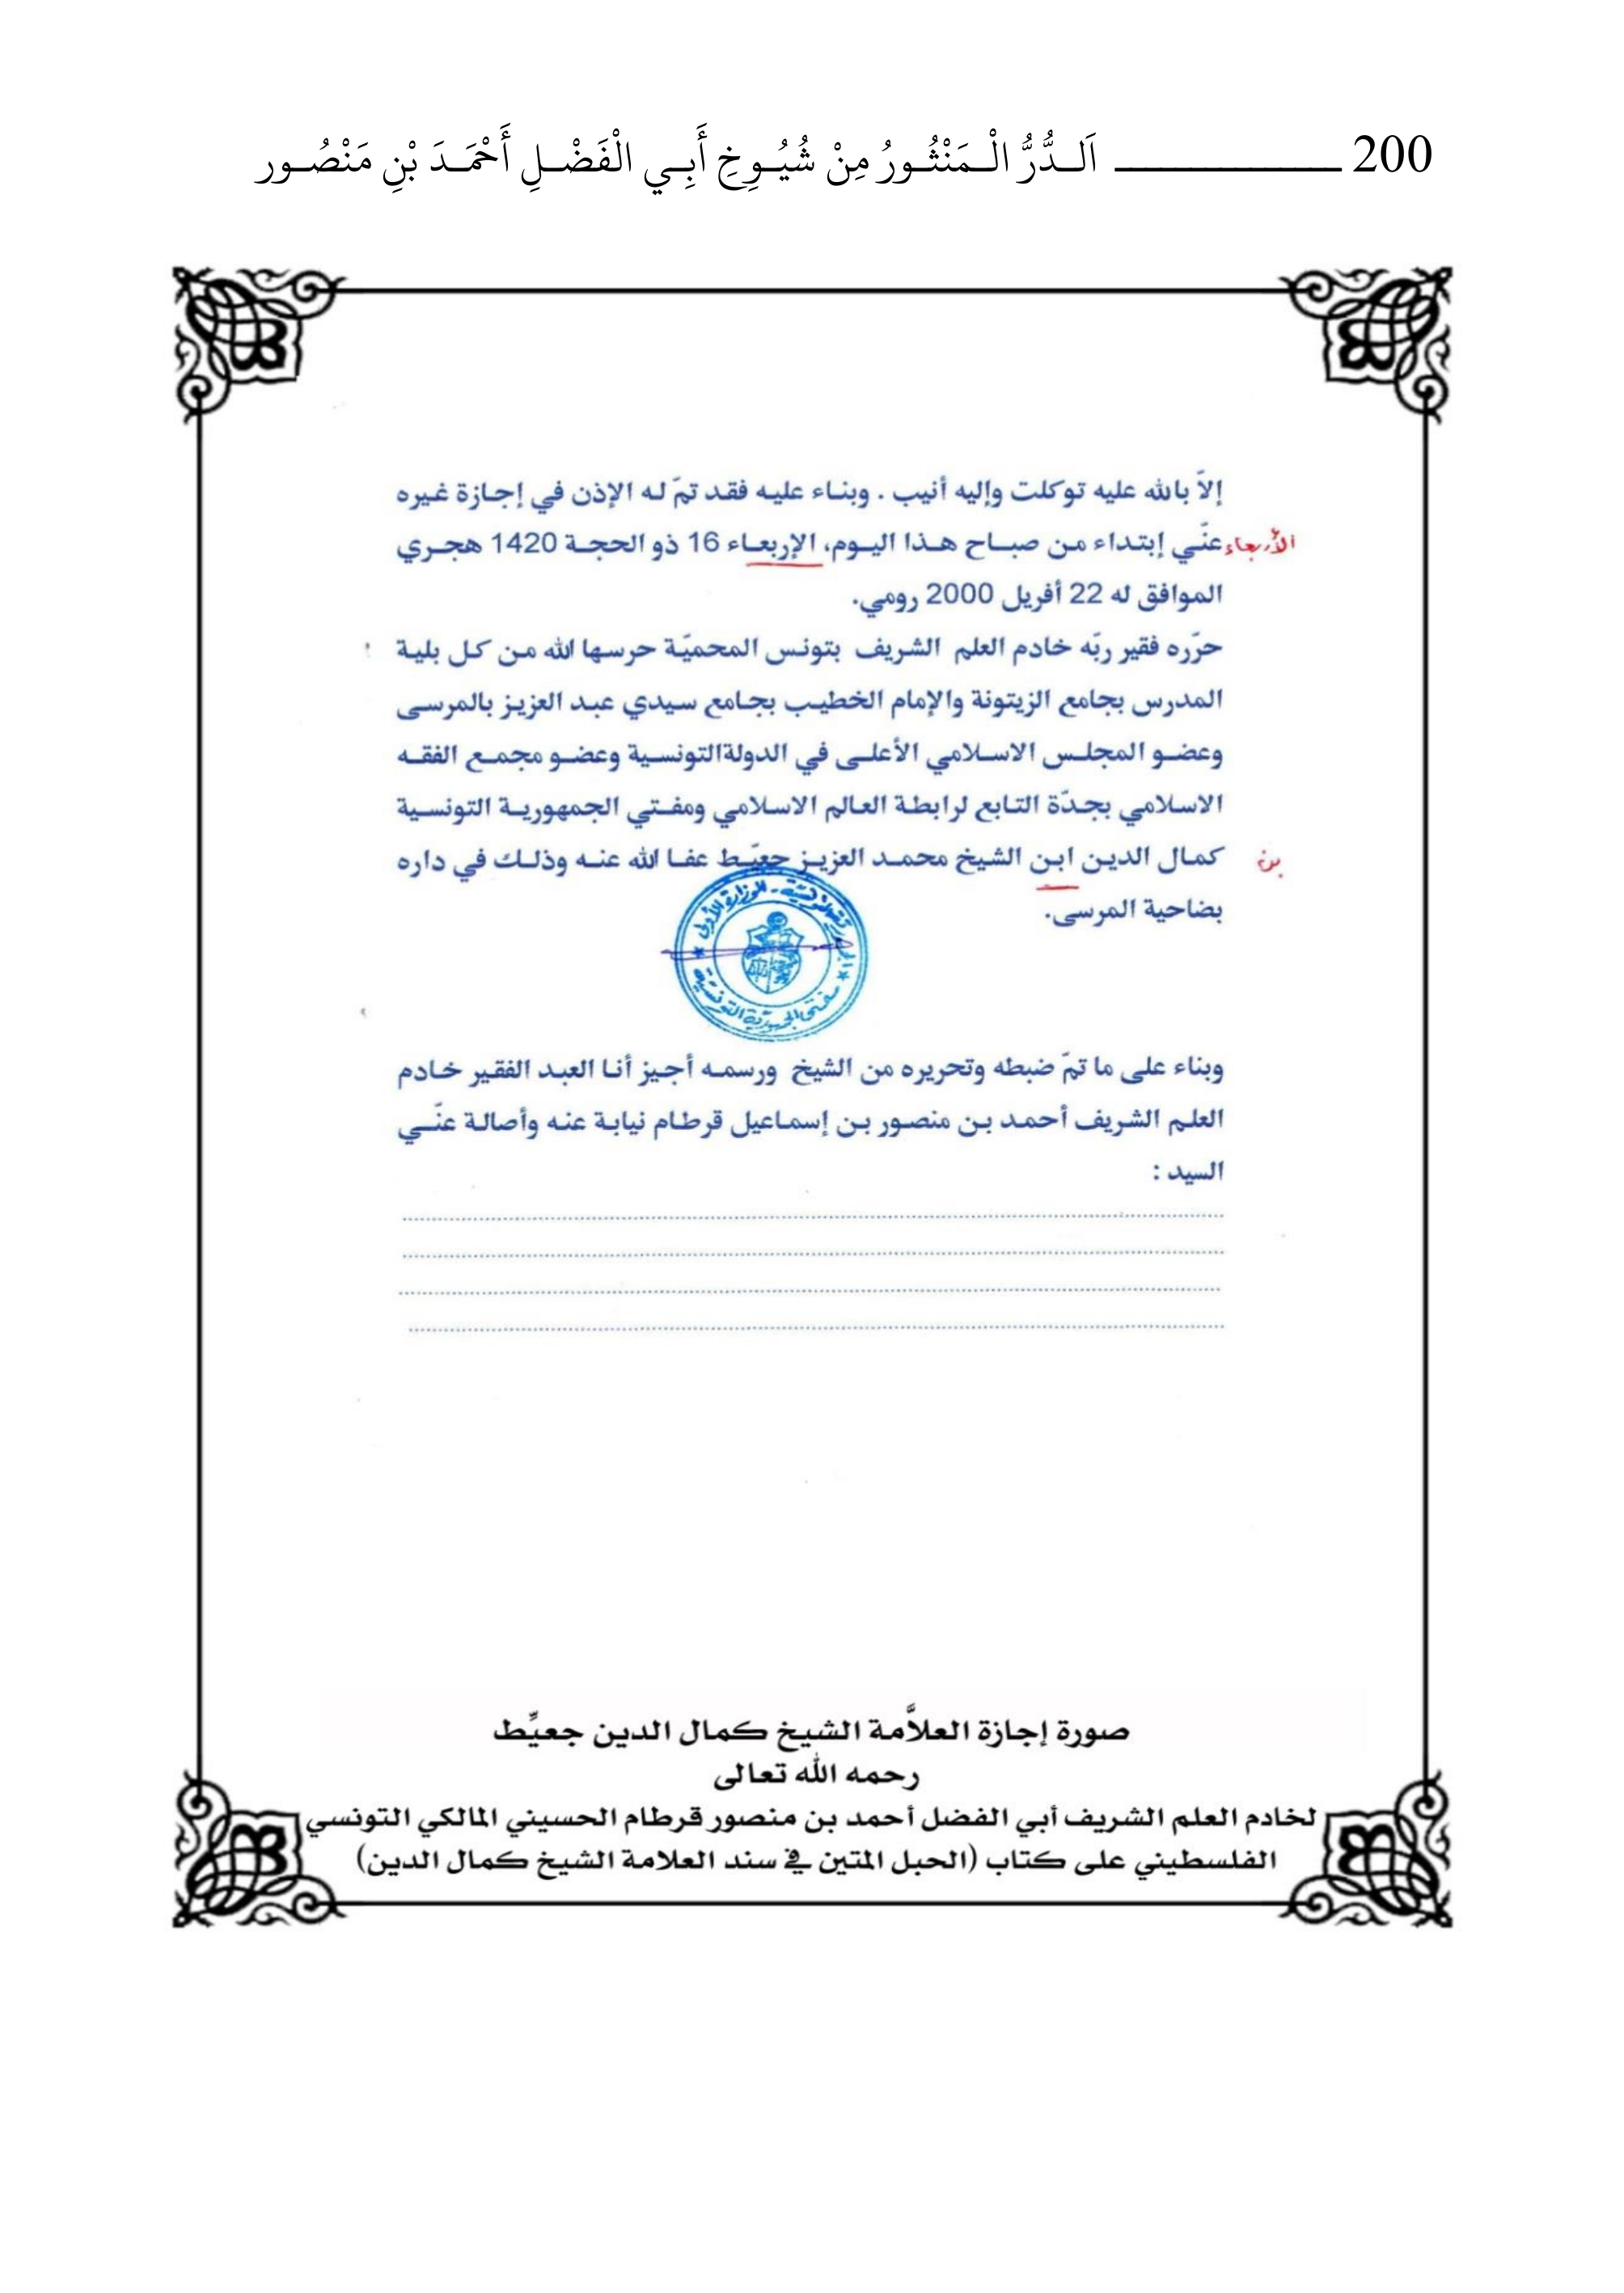 200 اَلـدُّرُّ الْـمَنْثُـورُ مِنْ شُيُـوخِ أَبِـي الْفَضْـلِ أَحْمَـدَ بْنِ مَنْصُـور
إلاّ بالله عليه توكلت وإليه أنيب . وبناء عليه فقد تمّ له الإذن في إجازة غيره
عنّي إبتداء من صباح هذا اليوم، الإربعاء 16 ذو الحجة 1420 هجري
الأربعاء
الموافق له 22 أفريل 2000 رومي.
حرّره فقير ربّه خادم العلم الشريف بتونس المحميّة حرسها الله من كل بلية
المدرس بجامع الزيتونة والإمام الخطيب بجامع سيدي عبد العزيز بالمرسى
وعضو المجلس الاسلامي الأعلى في الدولةالتونسية وعضو مجمع الفقه
الاسلامي بجدّة التابع لرابطة العالم الاسلامي ومفتي الجمهورية التونسية
كمال الدين ابن الشيخ محمد العزيز جعيّط عفا الله عنه وذلك في داره
بن
بضاحية المرسى.
الجمهورية التونسية - الوزارة الأولى
مفتي الجمهورية التونسية
وبناء على ما تمّ ضبطه وتحريره من الشيخ ورسمه أجيز أنا العبد الفقير خادم
العلم الشريف أحمد بن منصور بن إسماعيل قرطام نيابة عنه وأصالة عنّي
السيد :
صورة إجازة العلاَّمة الشيخ كمال الدين جعيِّط
رحمه الله تعالى
لخادم العلم الشريف أبي الفضل أحمد بن منصور قرطام الحسيني المالكي التونسي
الفلسطيني على كتاب (الحبل المتين في سند العلامة الشيخ كمال الدين)